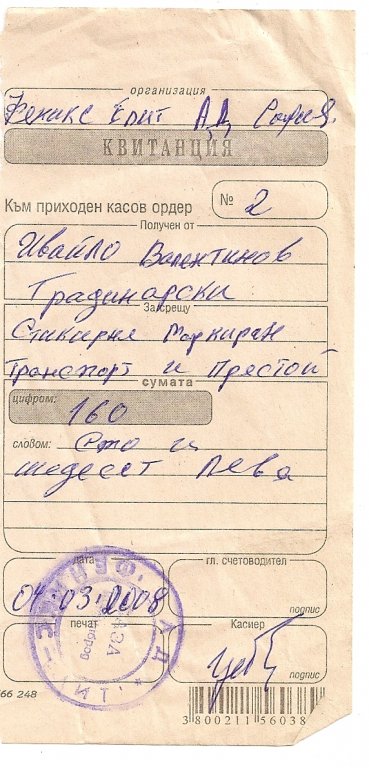 организация
Феникс Ерит АД София.
КВИТАНЦИЯ
Към приходен касов ордер № 2
Получен от
Ивайло Валентинов
Градинарски
За срещу
Маркиран
Транспорт и Престой
сумата
цифром: 160
словом: Сто и
шедесет лева
дата
гл. счетоводител
04.03.2008
подпис
печат
Касиер
подпис
66 248
3800211 56038